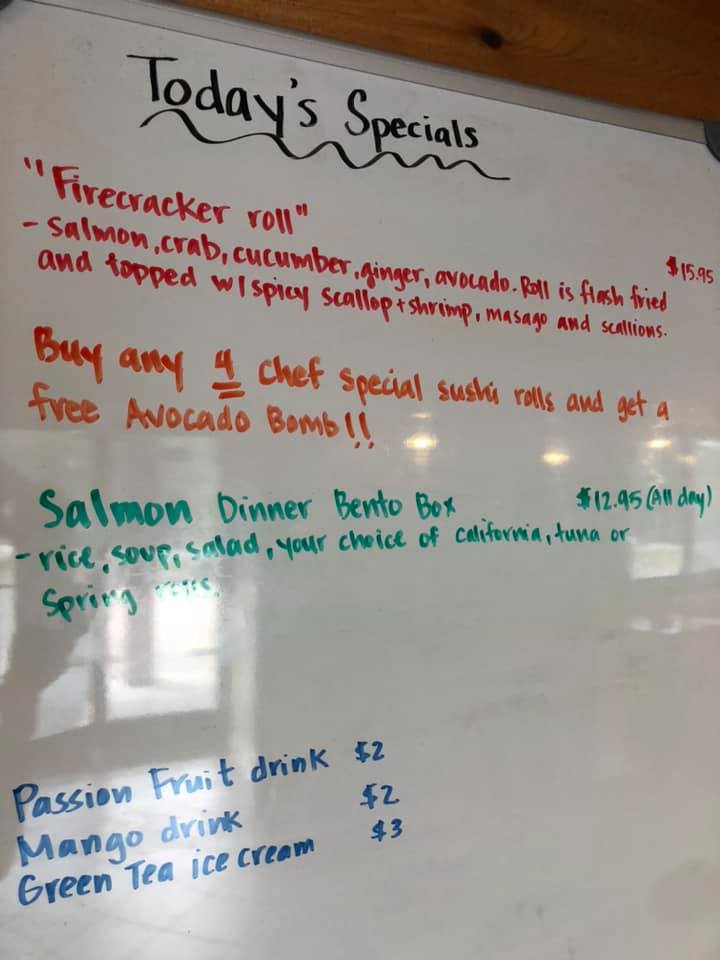 Today's Specials
"Firecracker roll"
- Salmon, crab, cucumber, ginger, avocado. Roll is flash fried $15.95
and topped w/ spicy scallop + shrimp, masago and scallions.
Buy any 4 chef special sushi rolls and get a
free Avocado Bomb!!
Salmon Dinner Bento Box $12.95 (All day)
- rice, soup, salad, your choice of california, tuna or
Spring rolls.
Passion Fruit drink $2
Mango drink $2
Green Tea ice cream $3